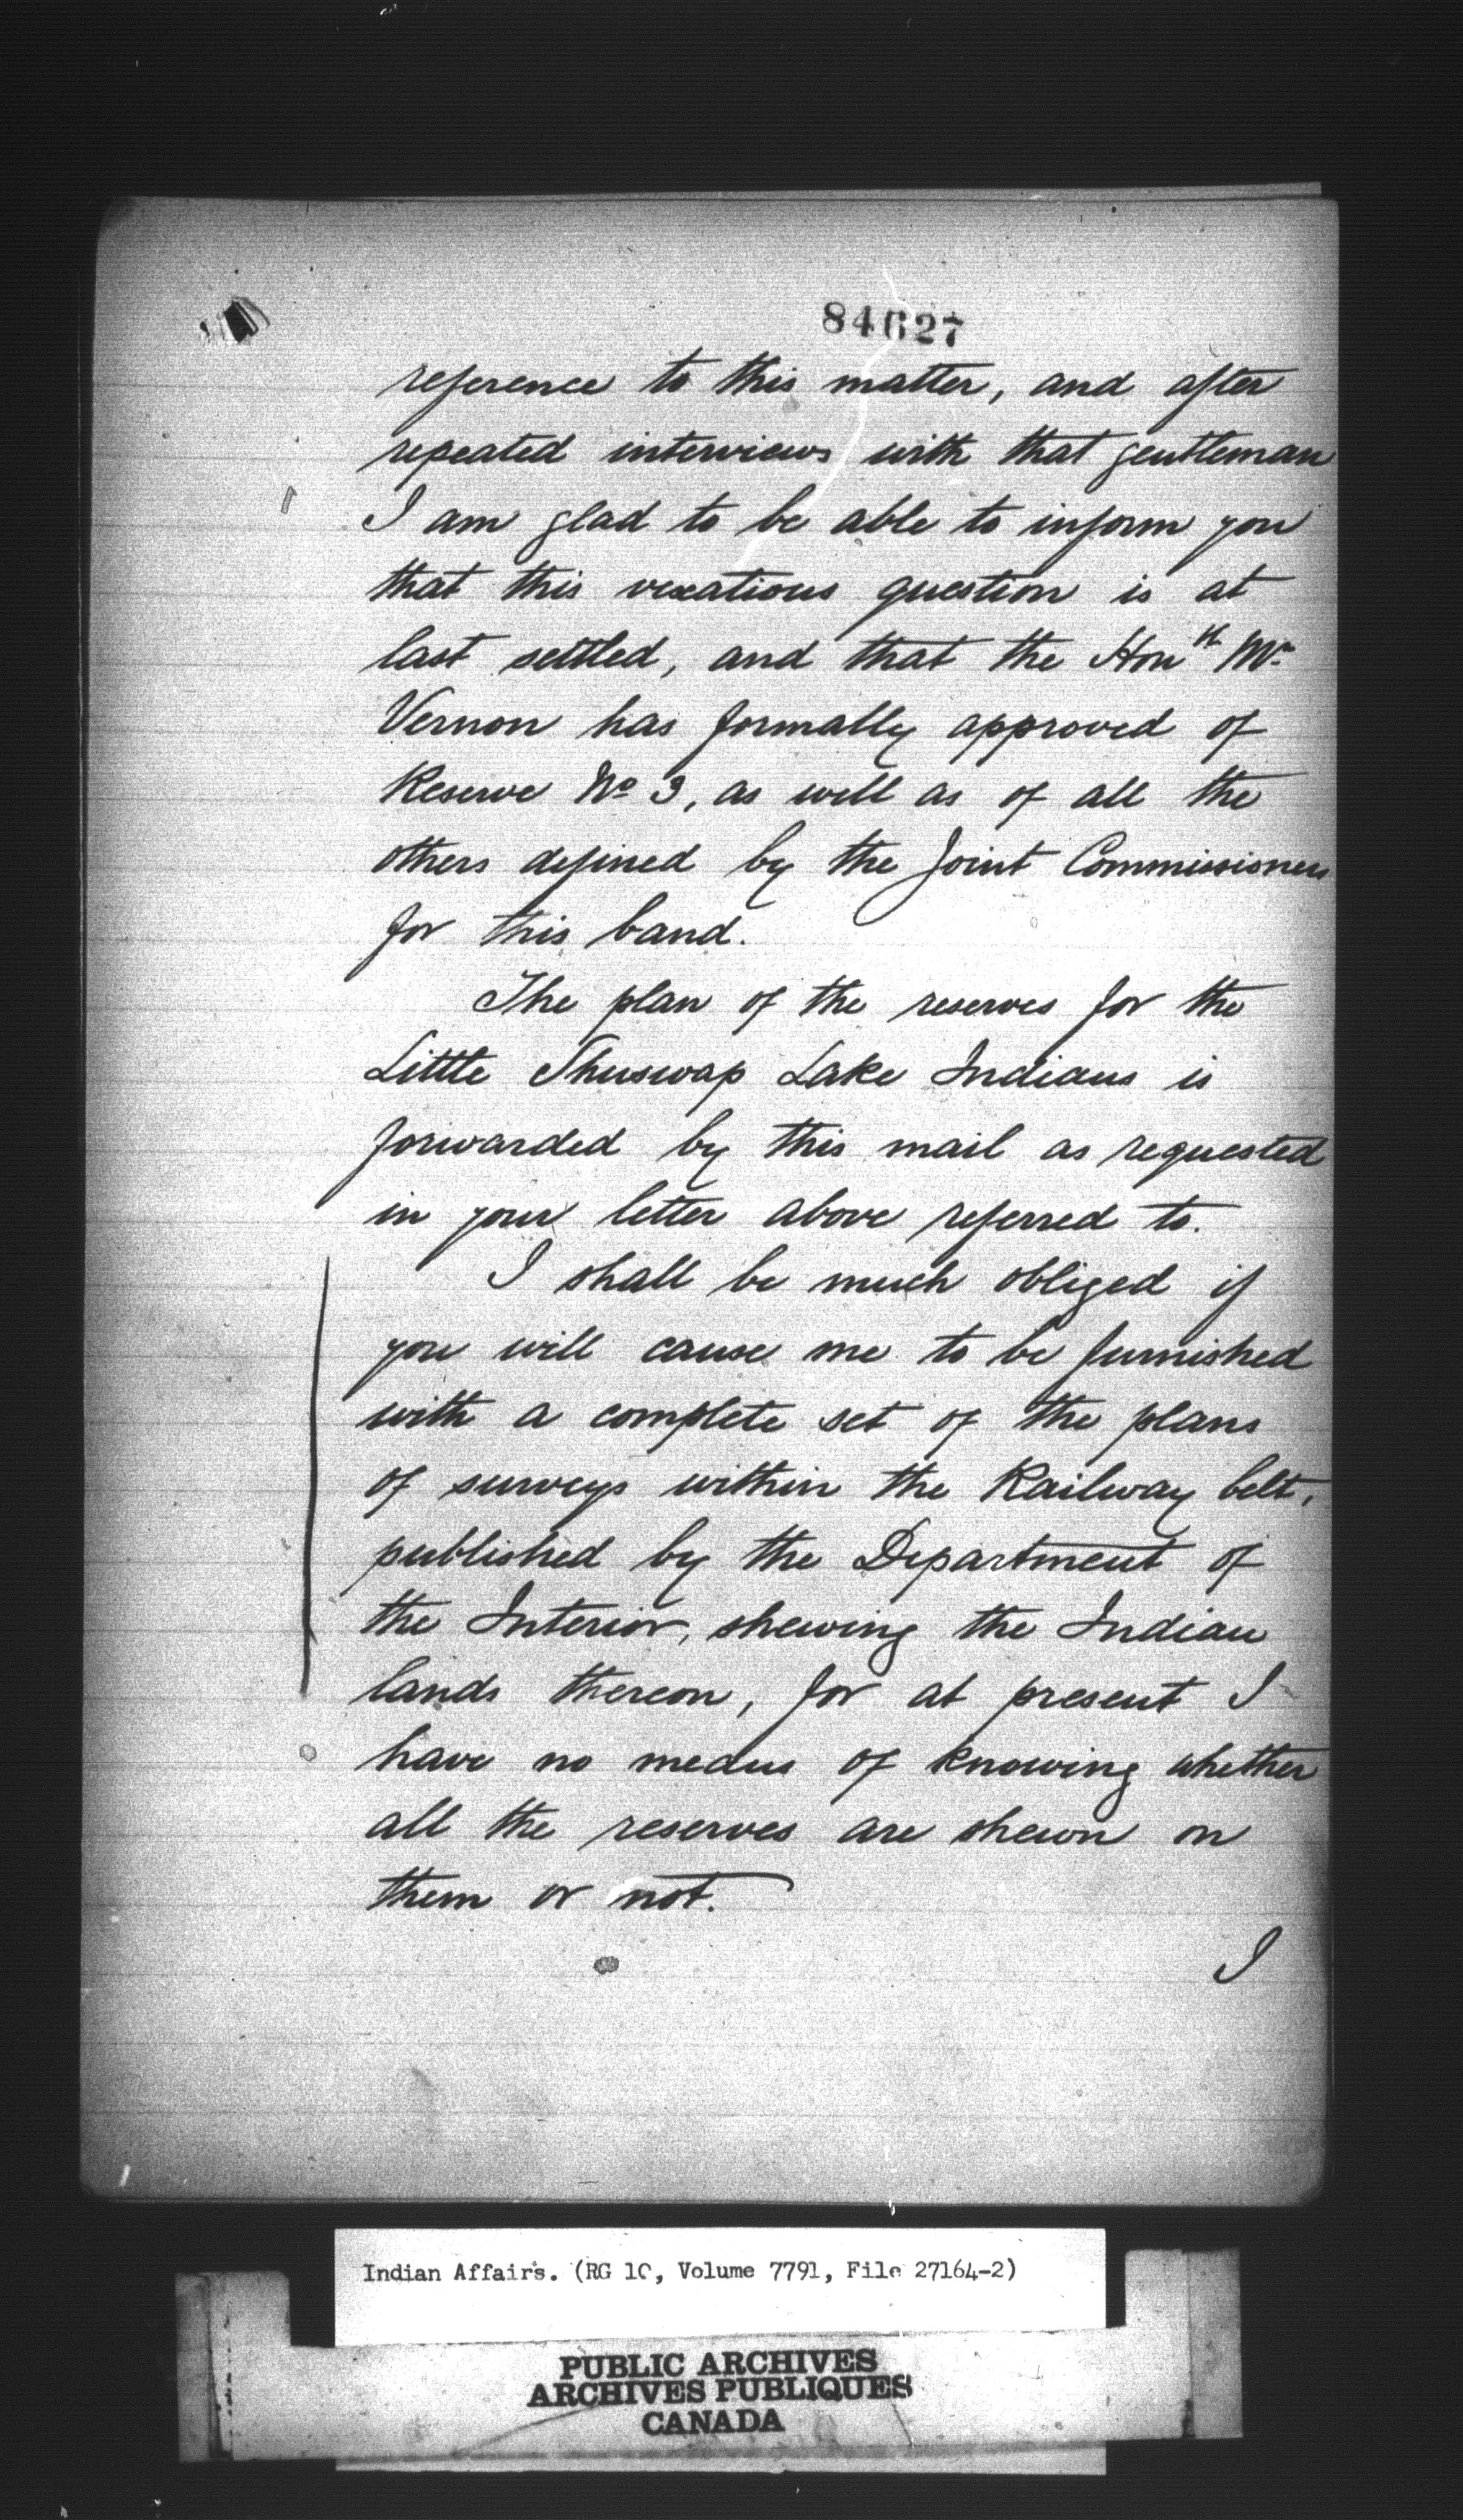 84627
reference to this matter, and after
repeated interviews with that gentleman
I am glad to be able to inform you
that this vexatious question is at
last settled, and that the Honble Mr.
Vernon has formally approved of
Reserve No 3, as well as of all the
others defined by the Joint Commissioners
for this band.
The plan of the reserves for the
Little Shuswap Lake Indians is
forwarded by this mail as requested
in your letter above referred to.
I shall be much obliged if
you will cause me to be furnished
with a complete set of the plans
of surveys within the Railway belt,
published by the Department of
the Interior, shewing the Indian
lands thereon, for at present I
have no means of knowing whether
all the reserves are shewn on
them or not.
I
Indian Affairs. (RG 10, Volume 7791, File 27164-2)
PUBLIC ARCHIVES
ARCHIVES PUBLIQUES
CANADA